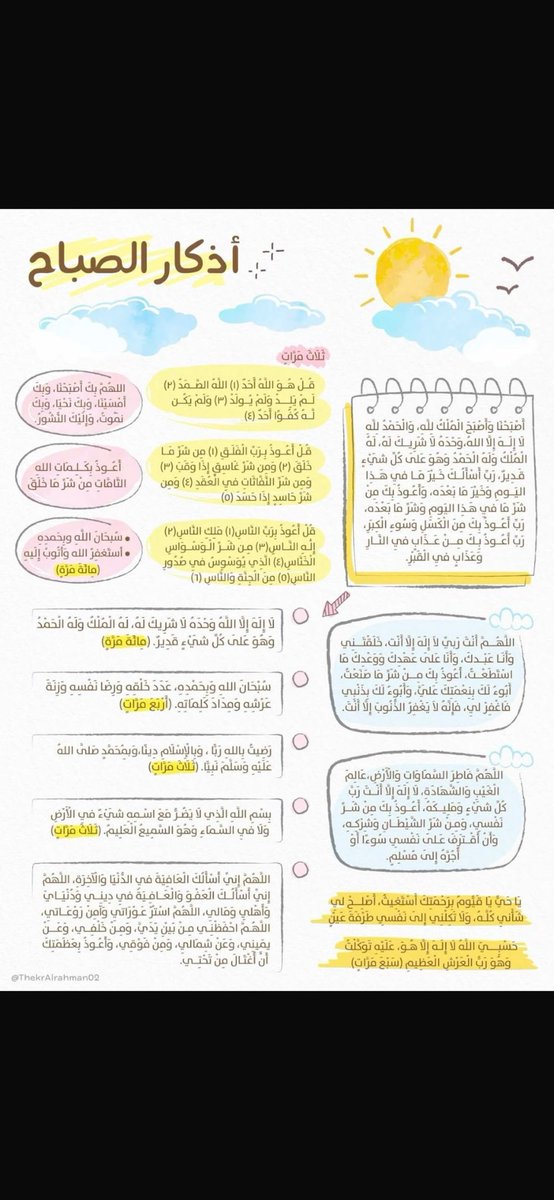 أذكار الصباح
أَصْبَحْنَا وَأَصْبَحَ الْمُلْكُ لِلَّهِ، وَالْحَمْدُ لِلَّهِ
لَا إِلَهَ إِلَّا اللَّهُ،وَحْدَهُ لَا شَرِيكَ لَهُ، لَهُ
الْمُلْكُ وَلَهُ الْحَمْدُ وَهُوَ عَلَى كُلِّ شَيْءٍ
قَدِيرٌ، رَبِّ أَسْأَلُكَ خَيْرَ مَا فِي هَذَا
اليَومِ وَخَيْرَ مَا بَعْدَهُ، وَأَعُوذُ بِكَ مِنْ
شَرِّ مَا فِي هَذَا اليَومِ وَشَرِّ مَا بَعْدَهُ،
رَبِّ أَعُوذُ بِكَ مِنَ الْكَسَلِ وَسُوءِ الْكِبَرِ،
رَبِّ أَعُوذُ بِكَ مِنْ عَذَابٍ فِي النَّارِ
وَعَذَابٍ فِي القَبْرِ.
ثَلَاثَ مَرَّاتٍ
قُلْ هُوَ اللَّهُ أَحَدٌ (١) اللَّهُ الصَّمَدُ (٢)
لَمْ يَلِدْ وَلَمْ يُولَدْ (٣) وَلَمْ يَكُن
لَّهُ كُفُوًا أَحَدٌ (٤)
قُلْ أَعُوذُ بِرَبِّ الْفَلَقِ (١) مِن شَرِّ مَا
خَلَقَ (٢) وَمِن شَرِّ غَاسِقٍ إِذَا وَقَبَ (٣)
وَمِن شَرِّ النَّفَّاثَاتِ فِي الْعُقَدِ (٤) وَمِن
شَرِّ حَاسِدٍ إِذَا حَسَدَ (٥)
قُلْ أَعُوذُ بِرَبِّ النَّاسِ(١) مَلِكِ النَّاسِ(٢)
إِلَهِ النَّاسِ(٣) مِن شَرِّ الْوَسْوَاسِ
الْخَنَّاسِ(٤) الَّذِي يُوَسْوِسُ فِي صُدُورِ
النَّاسِ(٥) مِنَ الْجِنَّةِ وَالنَّاسِ (٦)
اللهُمَّ بِكَ أَصْبَحْنَا، وَبِكَ
أَمْسَيْنَا، وَبِكَ نَحْيَا، وَبِكَ
نَمُوتُ، وَإِلَيْكَ النُّشُورُ.
أَعُوذُ بِكَلِمَاتِ الله
التَّامَّاتِ مِنْ شَرِّ مَا خَلَقَ
• سُبْحَانَ اللَّهِ وبِحَمدِهِ
• أستَغفِرُ الله وَأتُوبُ إلَيهِ
(مِائَةَ مَرَّةٍ)
اللَّهُمَّ أَنْتَ رَبِّي لَا إِلَهَ إِلَّا أَنْتَ، خَلَقْتَنِي
وَأَنَا عَبْدُكَ، وَأَنَا عَلَى عَهْدِكَ وَوَعْدِكَ مَا
اسْتَطَعْتُ، أَعُوذُ بِكَ مِنْ شَرِّ مَا صَنَعْتُ،
أَبُوءُ لَكَ بِنِعْمَتِكَ عَلَيَّ، وَأَبُوءُ لَكَ بِذَنْبِي
فَاغْفِرْ لِي، فَإِنَّهُ لَا يَغْفِرُ الذُّنُوبَ إِلَّا أَنْتَ.
اللَّهُمَّ فَاطِرَ السَّمَاوَاتِ وَالأَرْضِ،عَالِمَ
الْغَيْبِ وَالشَّهَادَةِ، لَا إِلَهَ إِلَّا أَنْتَ رَبَّ
كُلِّ شَيْءٍ وَمَلِيكَهُ، أَعُوذُ بِكَ مِنْ شَرِّ
نَفْسِي، وَمِنْ شَرِّ الشَّيْطَانِ وَشِرْكِهِ،
وَأَنْ أَقْتَرِفَ عَلَى نَفْسِي سُوءًا أَوْ
أَجُرَّهُ إِلَى مُسْلِمٍ.
يَا حَيُّ يَا قَيُّومُ بِرَحْمَتِكَ أَسْتَغِيثُ، أَصْلِحْ لِي
شَأْنِي كُلَّهُ، وَلَا تَكِلْنِي إِلَى نَفْسِي طَرْفَةَ عَيْنٍ
حَسْبِيَ اللَّهُ لَا إِلَهَ إِلَّا هُوَ، عَلَيْهِ تَوَكَّلْتُ
وَهُوَ رَبُّ الْعَرْشِ الْعَظِيمِ (سَبْعَ مَرَّاتٍ)
لَا إِلَهَ إِلَّا اللَّهُ وَحْدَهُ لَا شَرِيكَ لَهُ، لَهُ الْمُلْكُ وَلَهُ الْحَمْدُ
وَهُوَ عَلَى كُلِّ شَيْءٍ قَدِيرٌ. (مِائَةَ مَرَّةٍ)
سُبْحَانَ اللهِ وَبِحَمْدِهِ، عَدَدَ خَلْقِهِ وَرِضَا نَفْسِهِ وَزِنَةَ
عَرْشِهِ وَمِدَادَ كَلِمَاتِهِ. (أَرْبَعَ مَرَّاتٍ)
رَضِيتُ بِاللهِ رَبًّا ، وَبِالإِسْلَامِ دِينًا،وَبِمُحَمَّدٍ صَلَّى اللهُ
عَلَيْهِ وَسَلَّمَ نَبِيًّا. (ثَلَاثَ مَرَّاتٍ)
بِسْمِ اللَّهِ الَّذِي لَا يَضُرُّ مَعَ اسْمِهِ شَيْءٌ فِي الْأَرْضِ
وَلَا فِي السَّمَاءِ وَهُوَ السَّمِيعُ الْعَلِيمُ. (ثَلَاثَ مَرَّاتٍ)
اللَّهُمَّ إِنِّي أَسْأَلُكَ الْعَافِيَةَ فِي الدُّنْيَا وَالْآخِرَةِ، اللَّهُمَّ
إِنِّي أَسْأَلُكَ الْعَفْوَ وَالْعَافِيَةَ فِي دِينِي وَدُنْيَايَ
وَأَهْلِي وَمَالِي، اللَّهُمَّ اسْتُرْ عَوْرَاتِي وَآمِنْ رَوْعَاتِي،
اللَّهُمَّ احْفَظْنِي مِنْ بَيْنِ يَدَيَّ، وَمِنْ خَلْفِي، وَعَنْ
يمِينِي، وَعَنْ شِمَالِي، وَمِنْ فَوْقِي، وَأَعُوذُ بِعَظَمَتِكَ
أَنْ أُغْتَالَ مِنْ تَحْتِي.
@ThekrAlrahman02